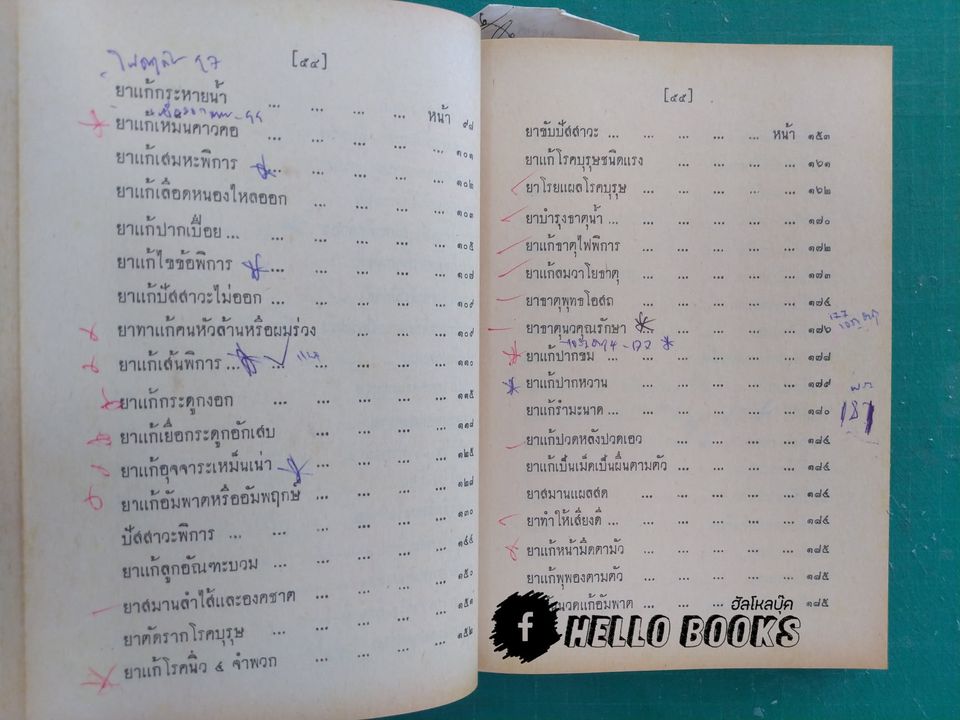 [๕๔]
ยาแก้กระหายน้ำ ... ... ... ... หน้า ๙๘
ยาแก้เหม็นคาวคอ ... ... ... ... ๑๐๑
ยาแก้เสมหะพิการ ... ... ... ... ๑๐๒
ยาแก้เลือดหนองไหลออก ... ... ... ... ๑๐๓
ยาแก้ปากเปื่อย ... ... ... ... ... ๑๐๕
ยาแก้ไขข้อพิการ ... ... ... ... ๑๐๗
ยาแก้ปัสสาวะไม่ออก ... ... ... ... ๑๐๙
ยาทาแก้คนหัวล้านหรือผมร่วง ... ... ... ๑๐๙
ยาแก้เส้นพิการ ... ... ... ... ... ๑๑๐
ยาแก้กระดูกงอก ... ... ... ... ๑๑๕
ยาแก้เยื่อกระดูกอักเสบ ... ... ... ... ๑๑๘
ยาแก้อุจจาระเหม็นเน่า ... ... ... ... ๑๒๕
ยาแก้อัมพาตหรืออัมพฤกษ์ ... ... ... ... ๑๒๘
ปัสสาวะพิการ ... ... ... ... ... ๑๓๐
ยาแก้ลูกอัณฑะบวม ... ... ... ... ๑๔๔
ยาสมานลำไส้และองคชาต ... ... ... ... ๑๕๐
ยาตัดรากโรคบุรุษ ... ... ... ... ๑๕๑
ยาแก้โรคนิ่ว ๔ จำพวก ... ... ... ... ๑๕๒
[๕๕]
ยาขับปัสสาวะ ... ... ... ... หน้า ๑๕๓
ยาแก้โรคบุรุษชนิดแรง ... ... ... ... ๑๖๑
ยาโรยแผลโรคบุรุษ ... ... ... ... ๑๖๒
ยาบำรุงธาตุน้ำ ... ... ... ... ... ๑๗๐
ยาแก้ธาตุไฟพิการ ... ... ... ... ๑๗๒
ยาแก้สมวาโยธาตุ ... ... ... ... ๑๗๓
ยาธาตุพุทธโอสถ ... ... ... ... ๑๗๔
ยาธาตุนวคุณรักษา ... ... ... ... ๑๗๖
ยาแก้ปากขม ... ... ... ... ... ๑๗๘
ยาแก้ปากหวาน ... ... ... ... ๑๗๙
ยาแก้รำมะนาด ... ... ... ... ... ๑๘๐
ยาแก้ปวดหลังปวดเอว ... ... ... ... ๑๘๔
ยาแก้เป็นเม็ดเป็นผื่นตามตัว ... ... ... ... ๑๘๔
ยาสมานแผลสด ... ... ... ... ๑๘๔
ยาทำให้เสียงดี ... ... ... ... ... ๑๘๔
ยาแก้หน้ามืดตามัว ... ... ... ... ๑๘๕
ยาแก้พุพองตามตัว ... ... ... ... ๑๘๕
นวดแก้อัมพาต ... ... ... ... ๑๘๕
187
ฮัลโหลบุ๊ค
f HELLO BOOKS